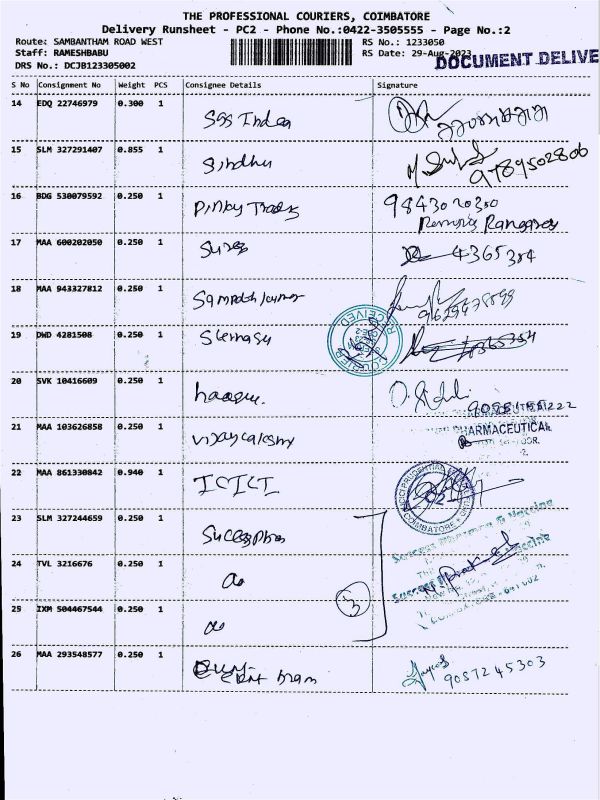 THE PROFESSIONAL COURIERS, COIMBATORE
Delivery Runsheet - PC2 - Phone No.:0422-3505555 - Page No.:2
Route: SAMBANTHAM ROAD WEST RS No.: 1233050
Staff: RAMESHBABU RS Date: 29-Aug-2023
DOCUMENT DELIVE
DRS No.: DCJB123305002
S No Consignment No Weight PCS Consignee Details Signature
14 EDQ 22746979 0.300 1 Sgs India
15 SLM 327291407 0.855 1 Sindhu 9789502806
16 BDG 530079592 0.250 1 Pinky Traders 9843020300
Rangaraj
17 MAA 600202050 0.250 1 Sures 4365384
18 MAA 943327812 0.250 1 Sampath kumar
19 DWD 4281508 0.250 1
RECEIVED
COURIER
20 SVK 10416609 0.250 1
21 MAA 103626858 0.250 1
PHARMACEUTICAL
22 MAA 861330842 0.940 1 ICICI
ICICI PRUDENTIAL
COIMBATORE
23 SLM 327244659 0.250 1
Success Pharma & Vaccine
24 TVL 3216676 0.250 1 do
25 IXM 504467544 0.250 1 do
3
26 MAA 293548577 0.250 1 9087245303